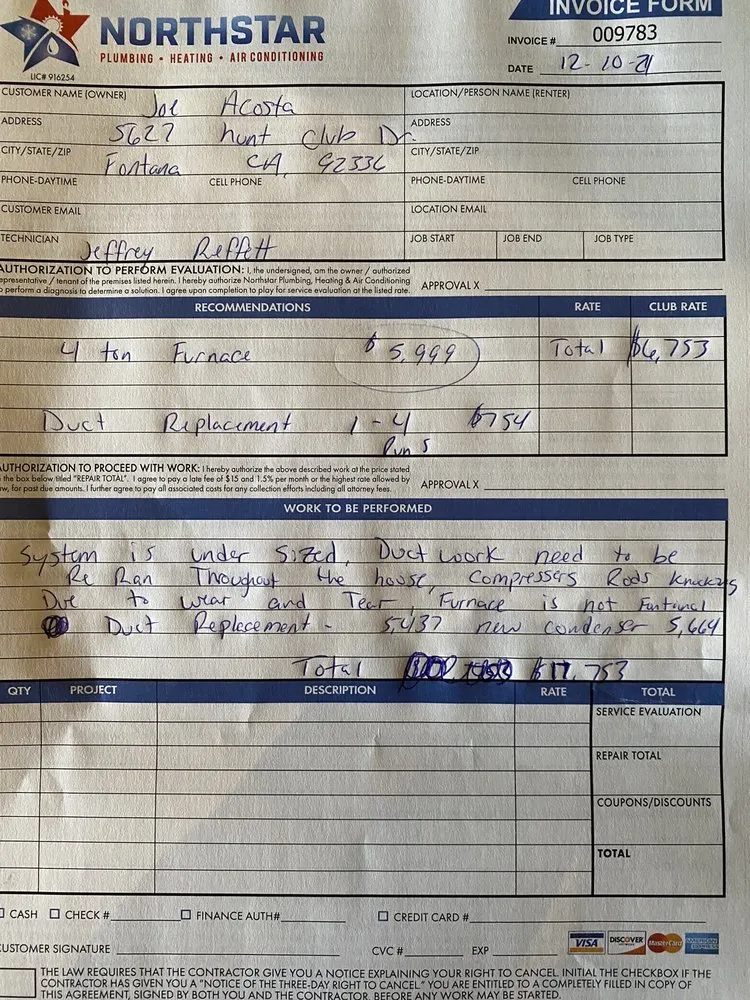 INVOICE FORM
NORTHSTAR
PLUMBING • HEATING • AIR CONDITIONING
LIC# 916254
INVOICE # 009783
DATE 12-10-21
CUSTOMER NAME (OWNER) Joe Acosta
LOCATION/PERSON NAME (RENTER)
ADDRESS 5627 hunt club Dr.
ADDRESS
CITY/STATE/ZIP Fontana CA, 92336
CITY/STATE/ZIP
PHONE-DAYTIME CELL PHONE
PHONE-DAYTIME CELL PHONE
CUSTOMER EMAIL
LOCATION EMAIL
TECHNICIAN Jeffrey Reffett
JOB START JOB END JOB TYPE
AUTHORIZATION TO PERFORM EVALUATION: I, the undersigned, am the owner / authorized
representative / tenant of the premises listed herein. I hereby authorize Northstar Plumbing, Heating & Air Conditioning
to perform a diagnosis to determine a solution. I agree upon completion to play for service evaluation at the listed rate.
APPROVAL X
RECOMMENDATIONS RATE CLUB RATE
4 ton Furnace $5,999 Total $6,753
Duct Replacement 1-4 $754
Runs
AUTHORIZATION TO PROCEED WITH WORK: I hereby authorize the above described work at the price stated
in the box below titled "REPAIR TOTAL". I agree to pay a late fee of $15 and 1.5% per month or the highest rate allowed by
law, for past due amounts. I further agree to pay all associated costs for any collection efforts including all attorney fees.
APPROVAL X
WORK TO BE PERFORMED
System is under sized, Duct work need to be
Re Ran Throughout the house, Compressers Rods knocking
Due to wear and Tear, Furnace is not
Duct Replecement - 5,437 new condenser 5,664
Total $17,753
QTY PROJECT DESCRIPTION RATE TOTAL
SERVICE EVALUATION
REPAIR TOTAL
COUPONS/DISCOUNTS
TOTAL
CASH CHECK # FINANCE AUTH# CREDIT CARD #
VISA DISCOVER MasterCard AMERICAN EXPRESS
CUSTOMER SIGNATURE CVC # EXP
THE LAW REQUIRES THAT THE CONTRACTOR GIVE YOU A NOTICE EXPLAINING YOUR RIGHT TO CANCEL. INITIAL THE CHECKBOX IF THE
CONTRACTOR HAS GIVEN YOU A "NOTICE OF THE THREE-DAY RIGHT TO CANCEL." YOU ARE ENTITLED TO A COMPLETELY FILLED IN COPY OF
THIS AGREEMENT, SIGNED BY BOTH YOU AND THE CONTRACTOR, BEFORE ANY WORK MAY BE STARTED.